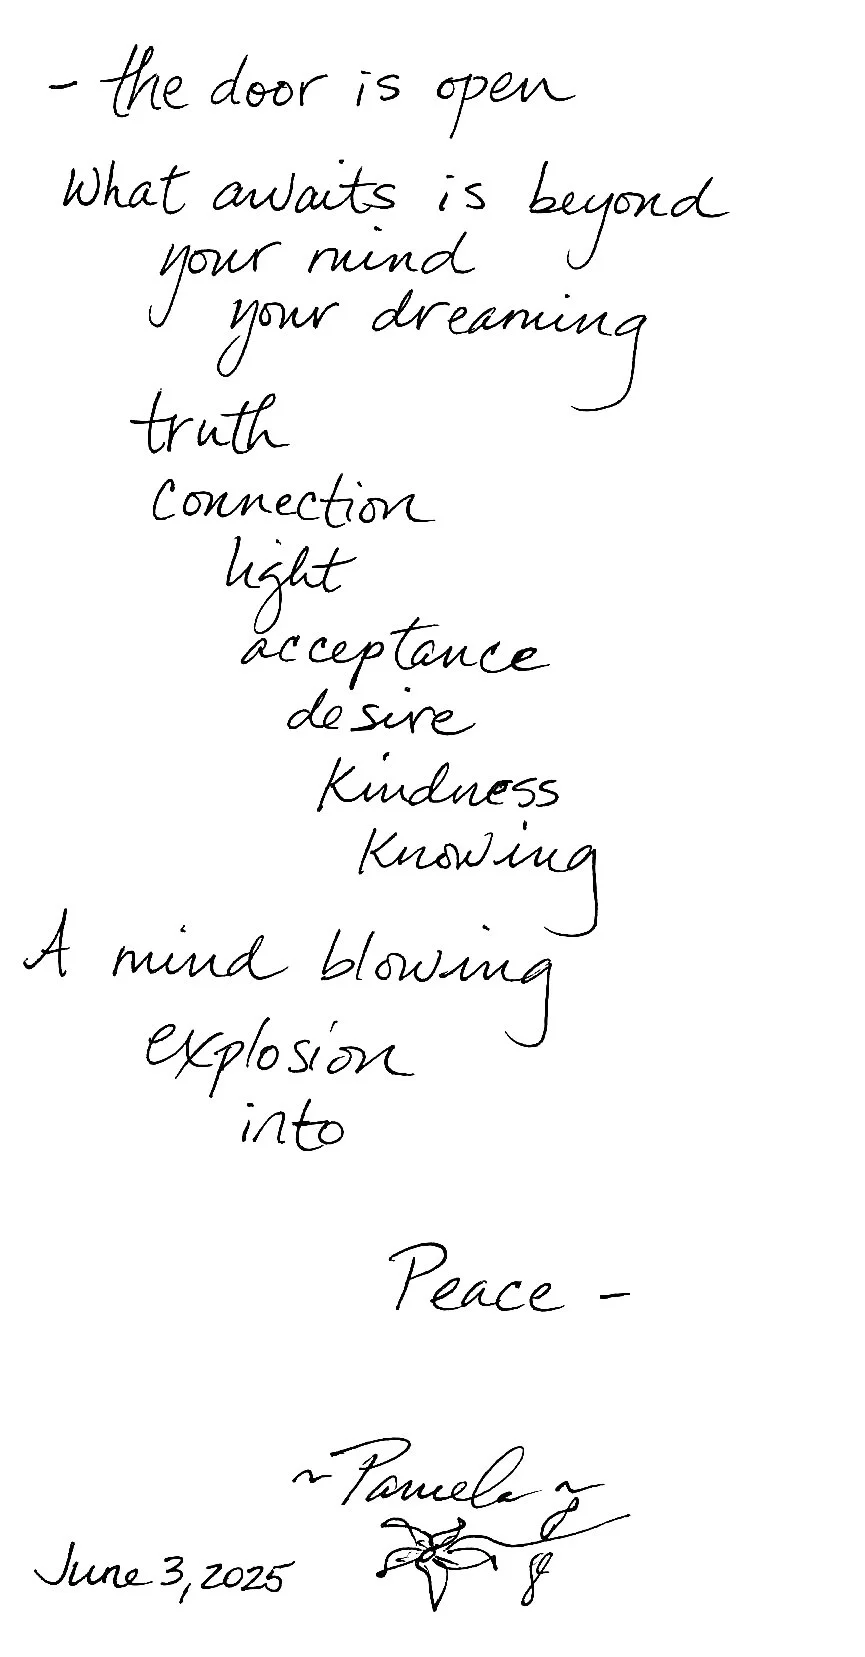 - the door is open
What awaits is beyond
your mind
your dreaming
truth
connection
light
acceptance
desire
Kindness
Knowing
A mind blowing
explosion
into
Peace -
~ Pamela ~
June 3, 2025